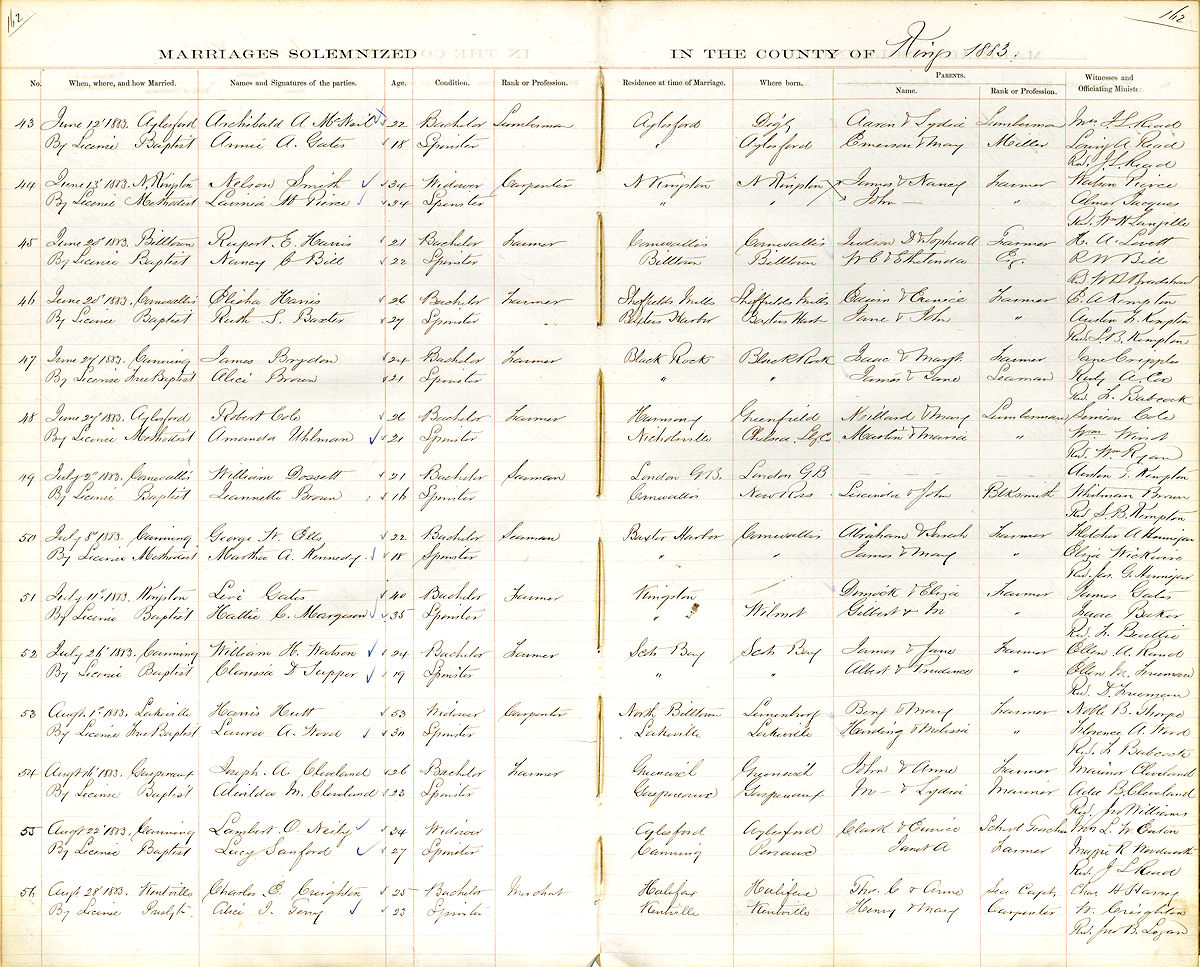 162
162
MARRIAGES SOLEMNIZED IN THE COUNTY OF Kings 1883.
PARENTS.
No. When, where, and how Married. Names and Signatures of the parties. Age. Condition. Rank or Profession. Residence at time of Marriage. Where born. Name. Rank or Profession. Witnesses and Officiating Ministe
43 June 12th 1883. Aylesford Archibald A McNeil 22 Bachelor Lumberman Aylesford Digby Aaron & Lydia Lumberman Mrs J L Read
By License Baptist Annie A. Gates 18 Spinster " Aylesford Emerson & Mary Miller A Read
Rev. J L Read
44 June 13th 1883. N. Kingston Nelson Smith 34 Widower Carpenter N Kingston N Kingston James & Nancy Farmer Watson Pierce
By License Methodist Lavinia Pierce 24 Spinster " " John — " Jacques
Rev. Wm H Langille
45 June 20th 1883. Billtown Rupert E. Harris 21 Bachelor Farmer Cornwallis Cornwallis Judson D & Sophea A Farmer H. A. Lovett
By License Baptist Nancy C Bill 22 Spinster Billtown Billtown W C & Ethelenda Esq. R W Bill
R. Bradshaw
46 June 20th 1883. Cornwallis Elisha Harris 26 Bachelor Farmer Sheffields Mills Sheffields Mills Edwin & Eunice Farmer E. A Kempton
By License Baptist Ruth S. Baxter 27 Spinster Baxters Harbor Baxters Harb Jane & John " Austen Kempton
Rev. S. B. Kempton
47 June 27th 1883. Canning James Brydon 24 Bachelor Farmer Black Rock Black Rock Isaac & Margt Farmer Jane Cripple
By License Free Baptist Alice Brown 21 Spinster " " James & Jane Seaman A. Cox
Rev. Babcock
48 June 27th 1883. Aylesford Robert Cole 26 Bachelor Farmer Harmony Greenfield Millard & Mary Lumberman Simeon Cole
By License Methodist Amanda Uhlman 21 Spinster Nicholsville Chelsea Martin & Maria " Wm
Rev. Wm Ryan
49 July 2d 1883. Cornwallis William Dossett 21 Bachelor Seaman London G B. London G B — — — — Austen Kempton
By License Baptist Jeannette Brown 16 Spinster Cornwallis New Ross Lucinda & John Blksmith Whitman Brown
Rev S. B. Kempton
50 July 8th 1883. Canning George W. Ells 22 Bachelor Seaman Baxter Harbor Cornwallis Abraham & Sarah Farmer Fletcher A Hennigar
By License Methodist Martha A. Kennedy 18 Spinster " " James & Mary " Eliza Wickwire
Rev. Jas. G. Hennigar
51 July 11th 1883. Kingston Levi Gates 40 Bachelor Farmer Kingston Dimock & Eliza Farmer James Gates
By License Baptist Hattie C. Margeson 35 Spinster " Wilmot Gilbert & M " Isaac Baker
Rev. Beattie
52 July 26th 1883. Canning William H. Watson 24 Bachelor Farmer Scots Bay Scots Bay James & Jane Farmer Ellen A. Rand
By License Baptist Clarissa D Tupper 19 Spinster " " Albert & Prudence " Ellen M. Freeman
Rev. D. Freeman
53 Augt 1st 1883. Lakeville Harris Hutt 53 Widower Carpenter North Billtown Lunenburg Benj & Mary Farmer B. Thorpe
By License Free Baptist Laura A. Wood 30 Spinster Lakeville Lakeville Harding & Melissa " Florence A. Wood
Rev. Babcock
54 Augt 16th 1883. Gaspereaux Joseph. A. Cleveland 26 Bachelor Farmer Greenwich Greenwich John & Anne Farmer Mariner Cleveland
By License Baptist Alcilda M. Cleveland 23 Spinster Gaspereaux Gaspereaux M— & Lydia Mariner Addie B. Cleveland
Rev. Jno Williams
55 Augt 22d 1883. Canning Lambert O. Neily 34 Widower Aylesford Aylesford Clark & Eunice School Teacher Mrs L. W. Eaton
By License Baptist Lucy Sanford 27 Spinster Canning Pereaux Janet A Farmer Maggie R. Woodworth
Rev. J L Read
56 Augt 28th 1883. Kentville Charles E. Creighton 25 Bachelor Merchnt Halifax Halifax Tho. C & Anne Sea Captn Chas. H Harvey
By License Presbytn Alice I. Terry 23 Spinster Kentville Kentville Henry & Mary Carpenter W. Creighton
Rev. Jno B. Logan